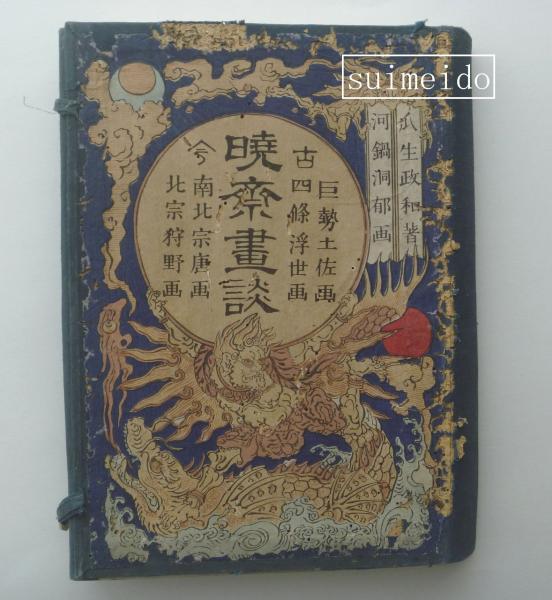 suimeido
瓜生政和著
河鍋洞郁画
巨勢土佐画
古四條浮世画
暁斎畫談
今南北宗唐画
北宗狩野画